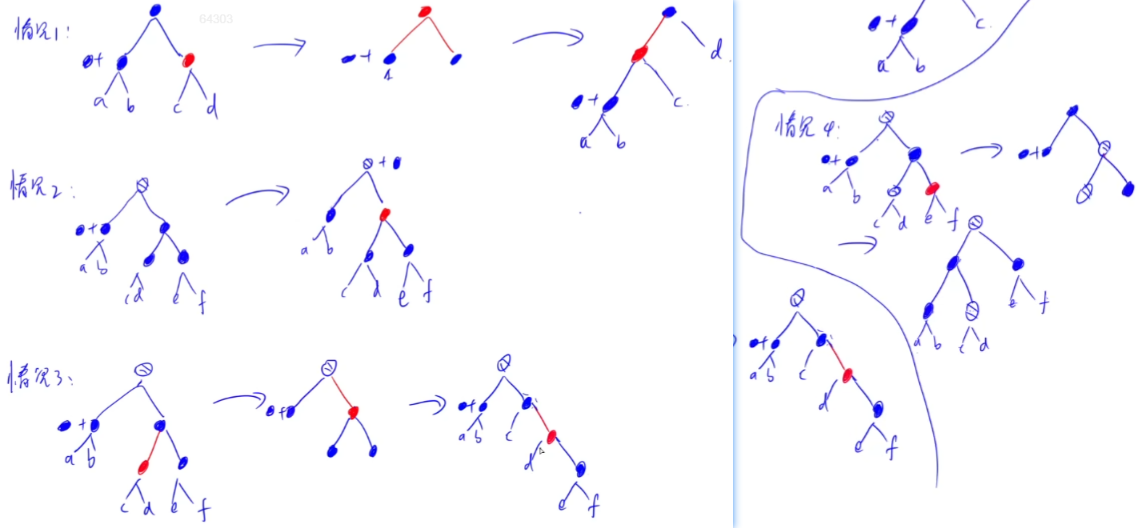 64303
情况1:
+
a b c d
+
1
+
a b c d.
情况2:
+
a b c d e f
+
a b c d e f
情况3:
+
a b c d e f
+
+
a b c d e f
+
a b c.
情况4:
+
a b c d e f
+
a b c d e f
+
a b c d e f